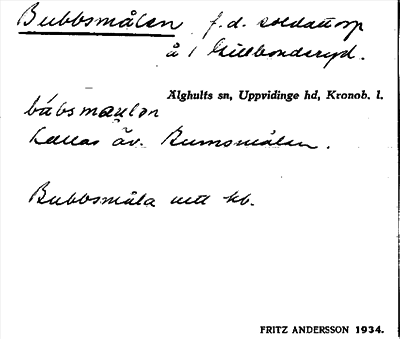 Bubbsmålen f.d. soldattorp
å 1 Gillbonderyd.
Älghults sn, Uppvidinge hd, Kronob. l.
bábsmaulən
kallas äv. Rumsmålen.
Bubbsmåla utt kb.
FRITZ ANDERSSON 1934.